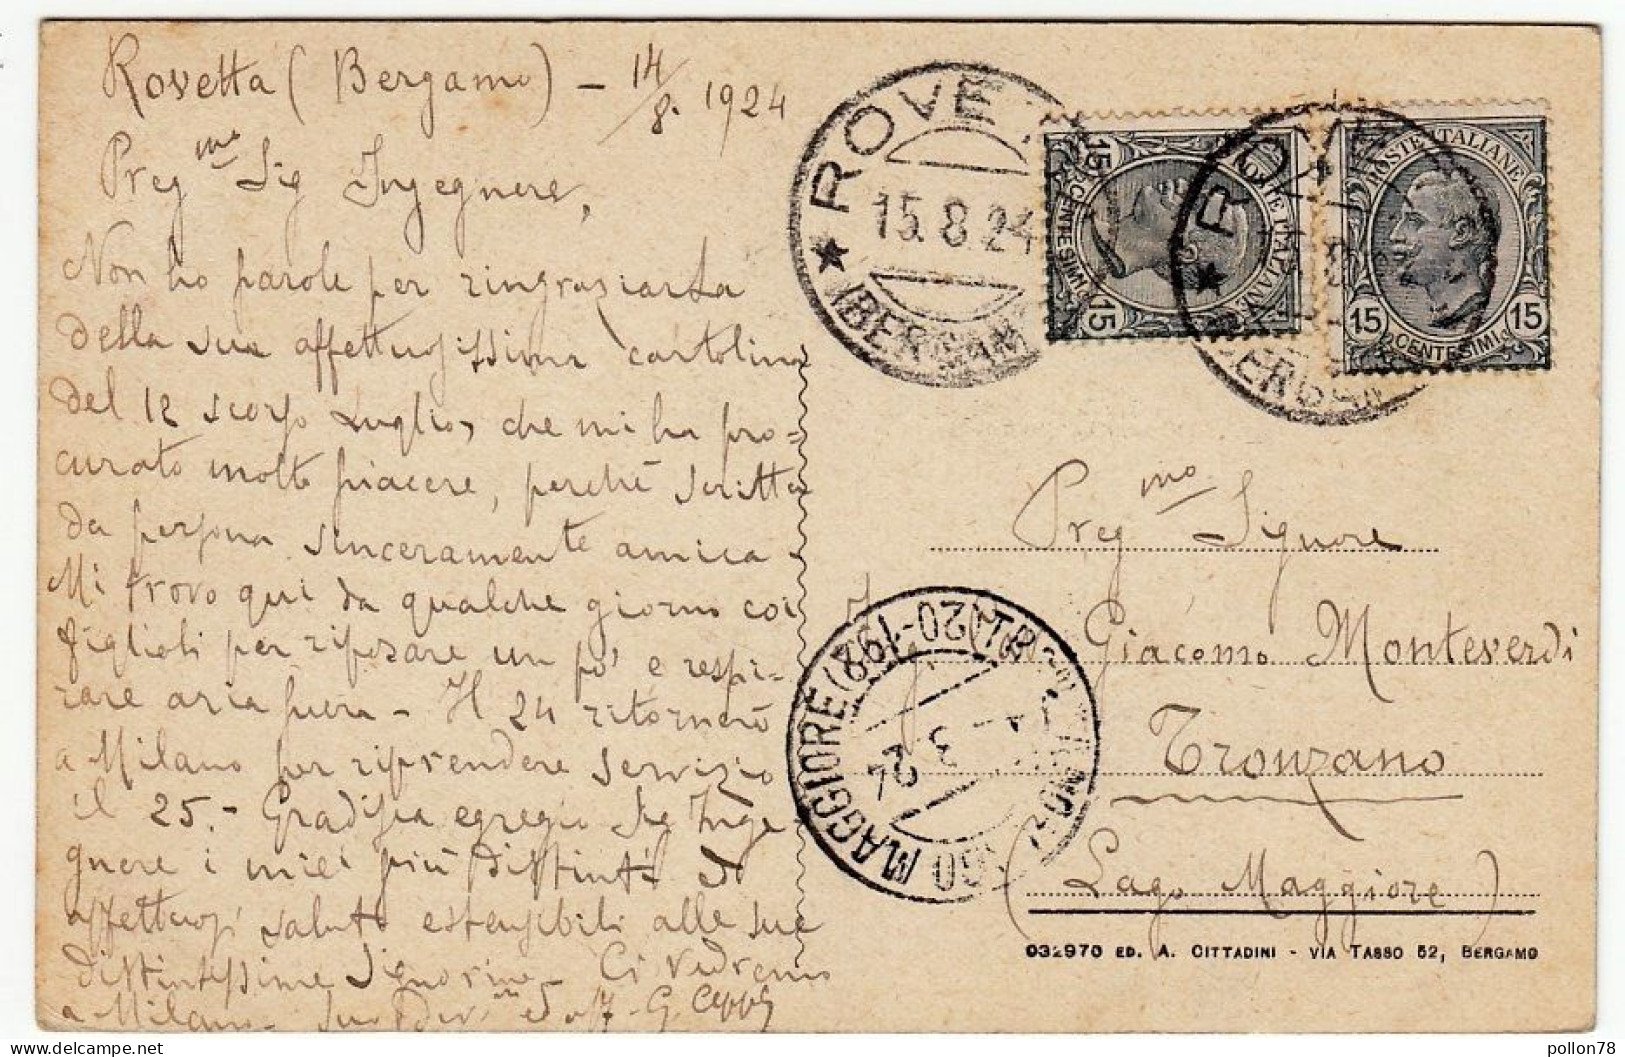 Rovetta (Bergamo) - 14/8. 1924
Preg.me Sig Ingegnere,
Non ho parole per ringraziarLa
della sua affettuosissima cartolina
del 12 scorso Luglio, che mi ha pro-
curato molto piacere, perchè scritta
da persona sinceramente amica -
Mi trovo qui da qualche giorno coi
figlioli per riposare un po' e respi-
rare aria pura - Il 24 ritornerò
a Milano per riprendere servizio
il 25. - Gradisca egregio Sig Inge
gnere i miei più distinti ed
affettuosi saluti estensibili alle sue
distintissime Signorine - Ci vedremo
a Milano - Suo dev.m ed aff. G. Ceppi
ROVE
15.8.24
(BERGAM
15 CENTESIMI 15
POSTE ITALIANE
ROV
BERGAM
POSTE ITALIANE
15 CENTESIMI 15
Preg.mo Signore
Giacomo Monteverdi
Tronzano
(Lago Maggiore)
MAGGIORE (20-198)
3
24
032970 ED. A. CITTADINI - VIA TASSO 52, BERGAMO
pollon78